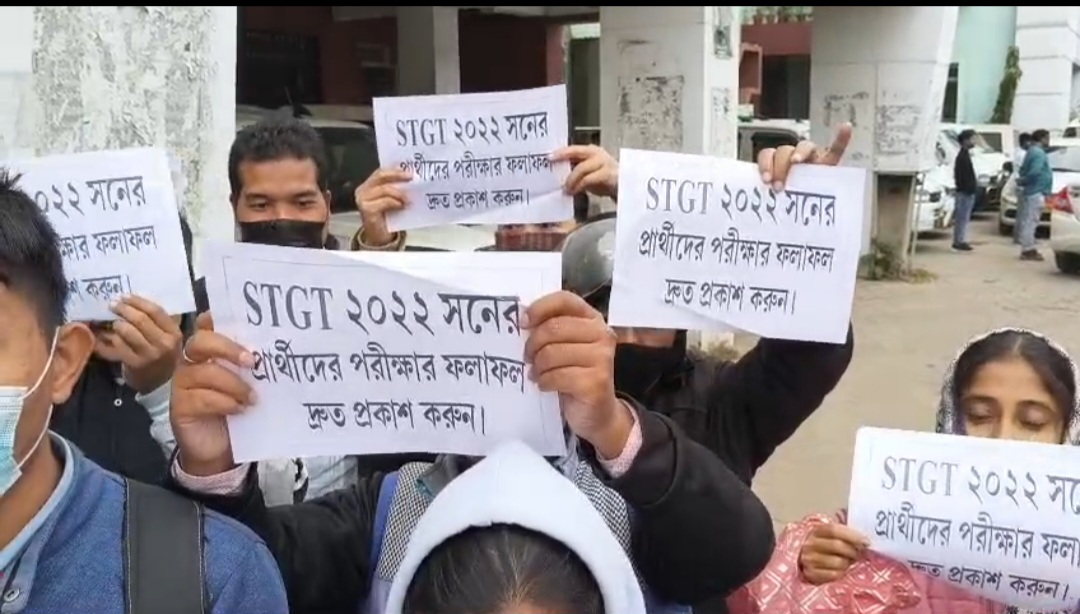 STGT ২০২২ সনের
প্রার্থীদের পরীক্ষার ফলাফল
দ্রুত প্রকাশ করুন।
STGT ২০২২ সনের
প্রার্থীদের পরীক্ষার ফলাফল
দ্রুত প্রকাশ করুন।
২০২২ সনের
ফলাফল
করুন।
STGT ২০২২ সনের
প্রার্থীদের পরীক্ষার ফলাফল
দ্রুত প্রকাশ করুন।
STGT ২০২২
প্রার্থীদের পরীক্ষার
দ্রুত প্রকাশ করুন।